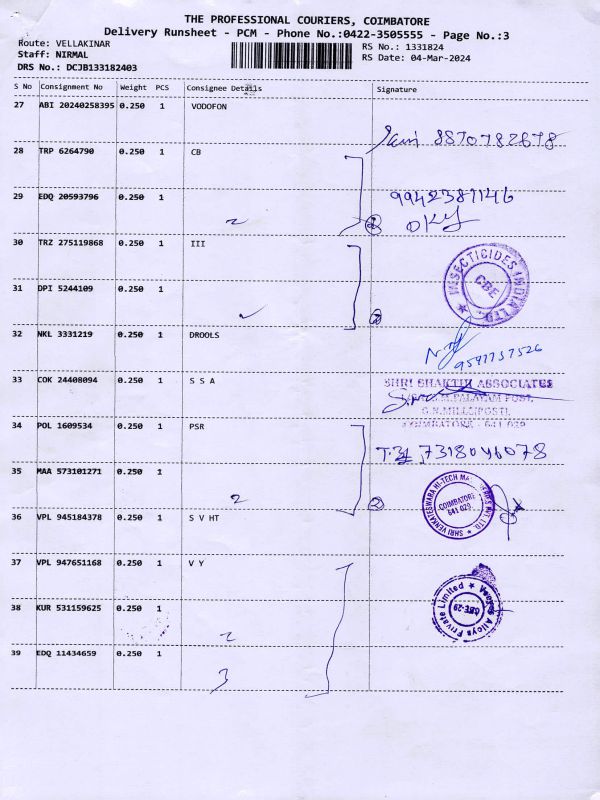 THE PROFESSIONAL COURIERS, COIMBATORE
Delivery Runsheet - PCM - Phone No.:0422-3505555 - Page No.:3
Route: VELLAKINAR
RS No.: 1331824
Staff: NIRMAL
RS Date: 04-Mar-2024
DRS No.: DCJB133182403
S No Consignment No Weight PCS Consignee Details Signature
27 ABI 20240258395 0.250 1 VODOFON
8870782678
28 TRP 6264790 0.250 1 CB
29 EDQ 20593796 0.250 1 9942387146
2 2 OKY
30 TRZ 275119868 0.250 1 III
INSECTICIDES INDIA LTD. ★
CBE
31 DPI 5244109 0.250 1
32 NKL 3331219 0.250 1 DROOLS
9597757526
33 COK 24408094 0.250 1 S S A
SHRI SHAKTHI ASSOCIATES
G.N.MILLS(POST),
COIMBATORE - 641 029
34 POL 1609534 0.250 1 PSR
7318046078
35 MAA 573101271 0.250 1
2 2
SHRI VENKATESWARA HI-TECH
COIMBATORE
641 029.
36 VPL 945184378 0.250 1 S V HT
37 VPL 947651168 0.250 1 V Y
Alloys Private Limited ★
CBE-29
38 KUR 531159625 0.250 1
2
39 EDQ 11434659 0.250 1
3